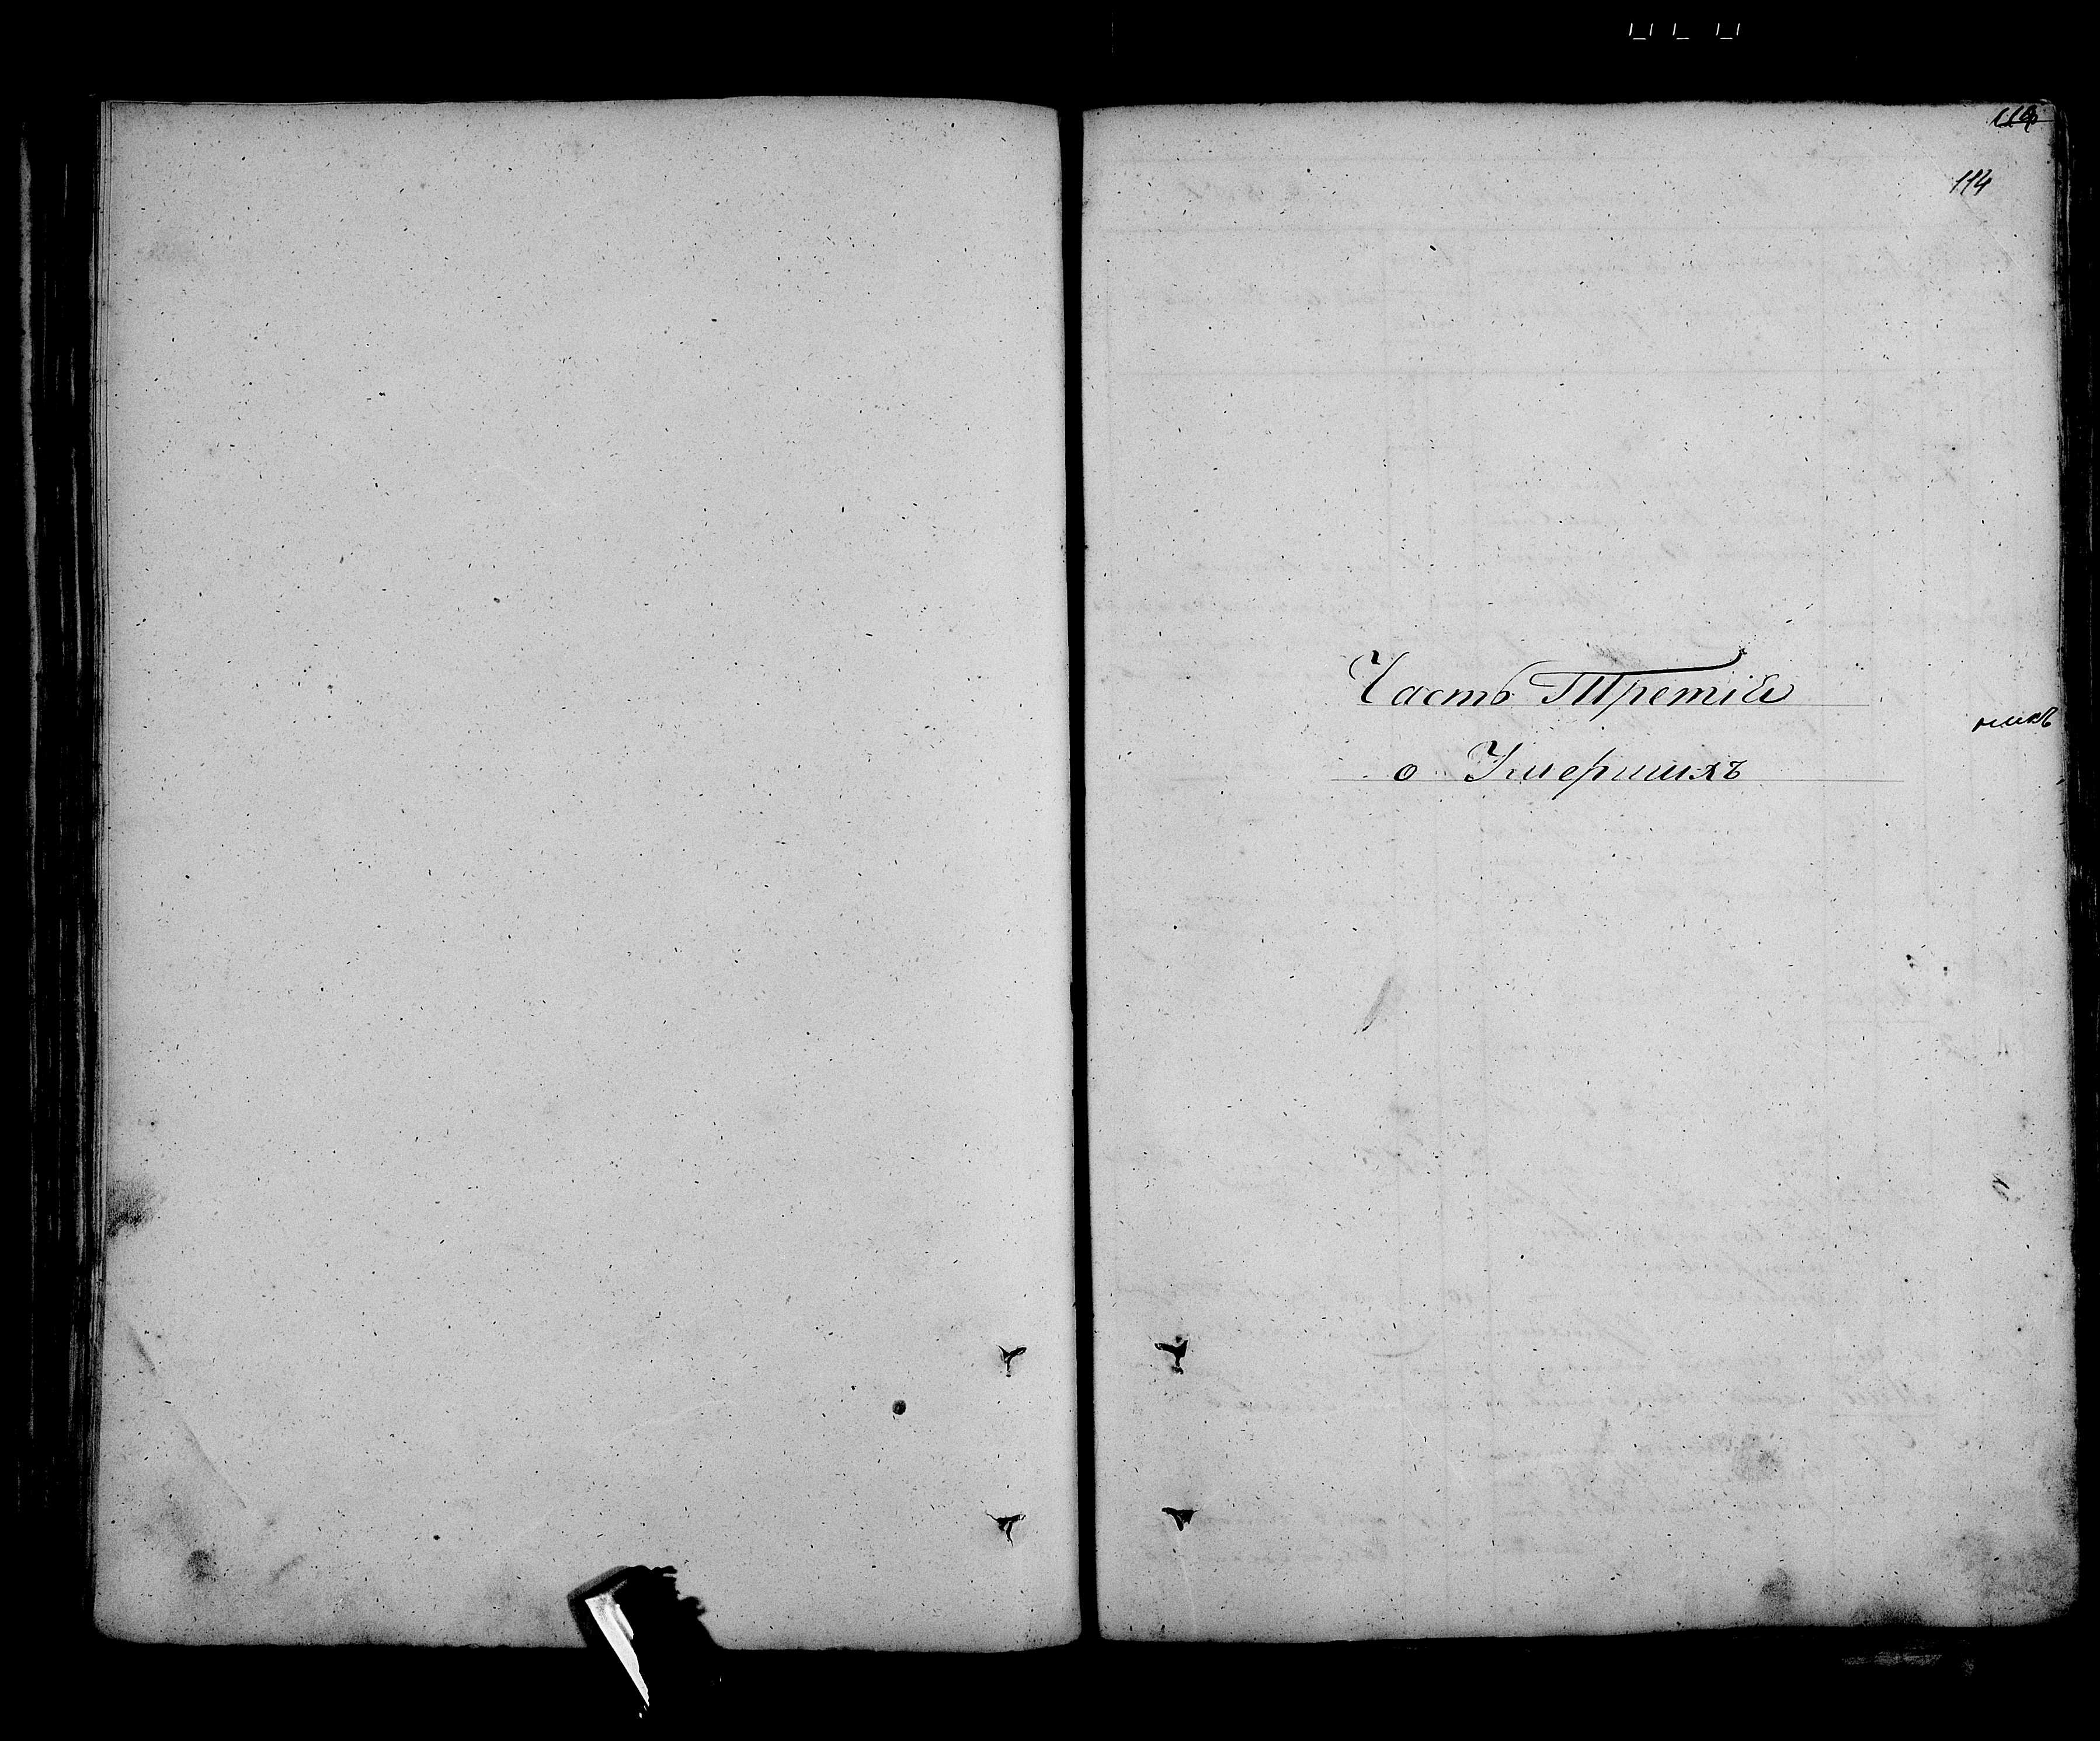 114
Часть Третія
о Умершихъ
никъ